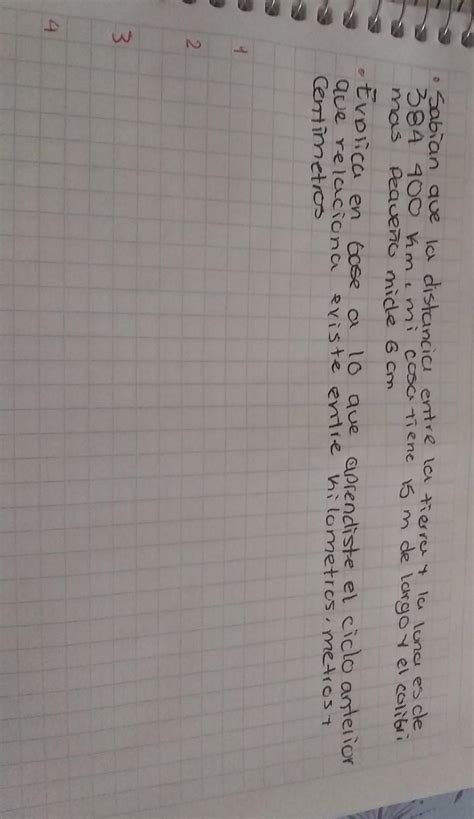 • Sabian que la distancia entre la tierra y la luna es de
384 400 km, mi casa tiene 15 m de largo y el colibri
mas pequeño mide 6 cm
• Explica en base a lo que aprendiste el ciclo anterior
que relaciona existe entre kilometros, metros y
centimetros
1
2
3
4